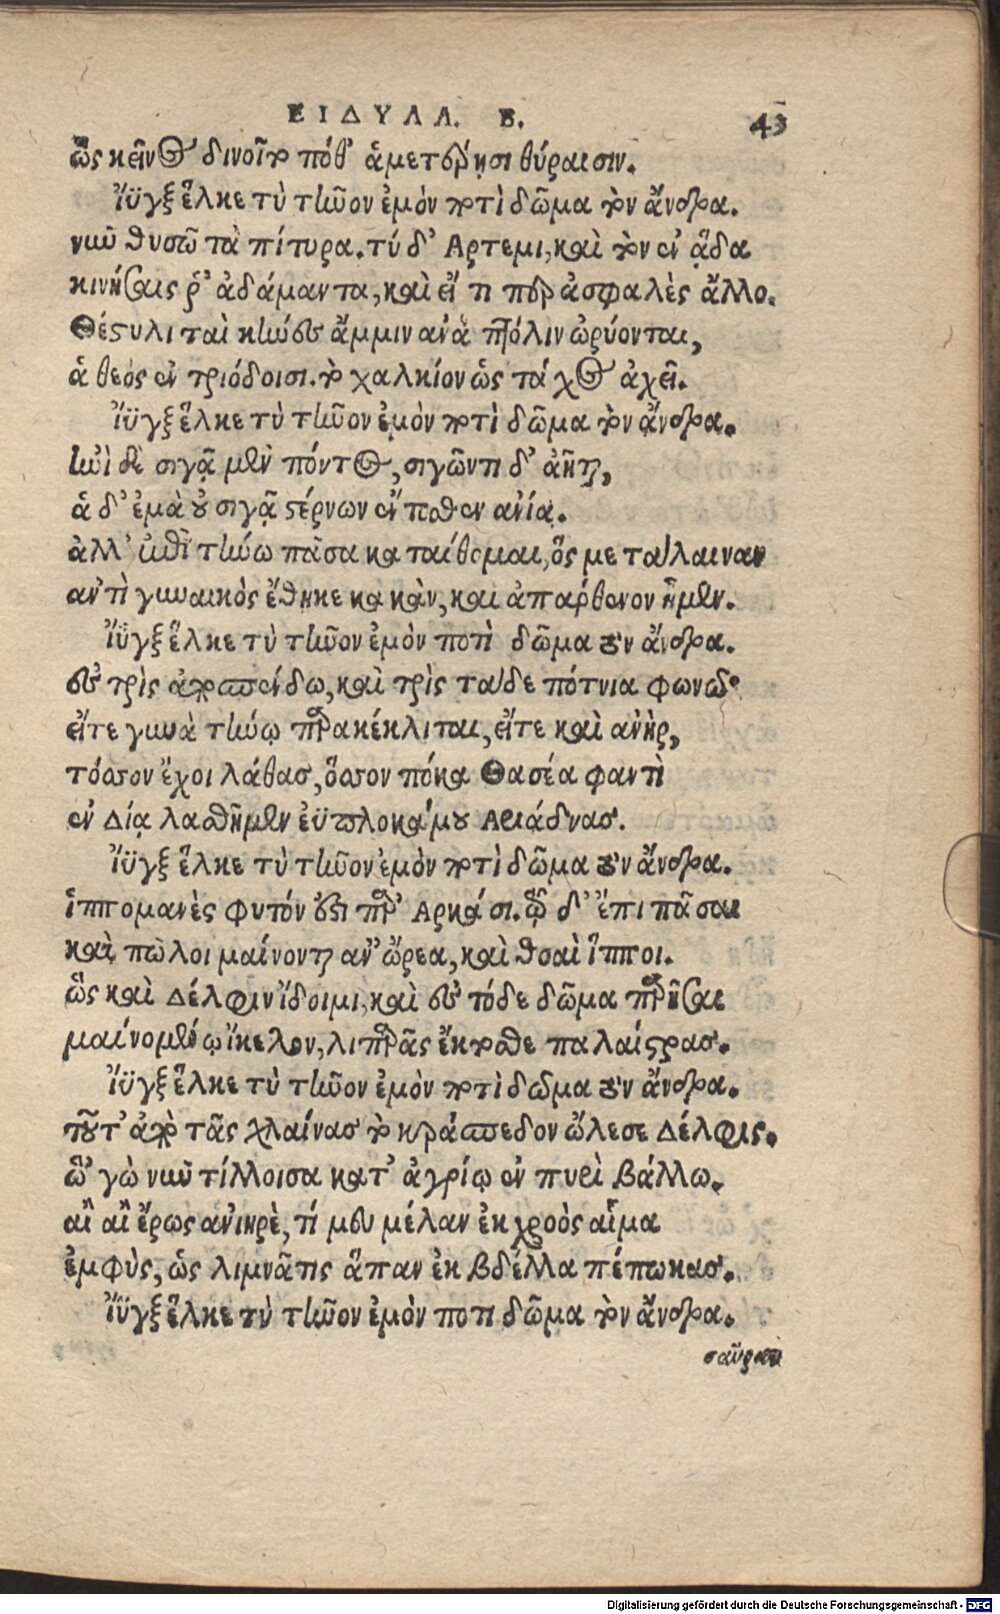 ΕΙΔΥΛΛ. Β. 43
ὣς κεῖνος δινοῖτο πόθ' ἁμετέρῃσι θύραισιν.
Ἴϋγξ ἕλκε τὺ τῆνον ἐμὸν ποτὶ δῶμα τὸν ἄνδρα.
νῦν θυσῶ τὰ πίτυρα. τύ δ' Ἄρτεμι, καὶ τὸν ἐν ᾅδα
κινήσαις ῥ' ἀδάμαντα, καὶ εἴ τι περ ἀσφαλὲς ἄλλο.
Θέστυλι ταὶ κύνες ἄμμιν ἀνὰ πτόλιν ὠρύονται,
ἁ θεὸς ἐν τριόδοισι. τὸ χαλκίον ὡς τάχος ἀχεῖ.
Ἴϋγξ ἕλκε τὺ τῆνον ἐμὸν ποτὶ δῶμα τὸν ἄνδρα.
ἠνὶ δὲ σιγᾷ μὲν πόντος, σιγῶντι δ' ἀῆται,
ἁ δ' ἐμὰ οὐ σιγᾷ στέρνων ἔντοθεν ἀνία.
ἀλλ' ἐπὶ τήνῳ πᾶσα καταίθομαι, ὅς με τάλαιναν
ἀντὶ γυναικὸς ἔθηκε κακὰν, καὶ ἀπάρθενον ἦμεν.
Ἴϋγξ ἕλκε τὺ τῆνον ἐμὸν ποτὶ δῶμα τὸν ἄνδρα.
ἐς τρὶς ἀποσπένδω, καὶ τρὶς τάδε πότνια φωνῶ·
εἴτε γυνὰ τήνῳ παρακέκλιται, εἴτε καὶ ἀνὴρ,
τόσσον ἔχοι λάθας, ὅσσον πόκα Θασέα φαντὶ
ἐν Δίᾳ λασθῆμεν ἐϋπλοκάμου Ἀριάδνας.
Ἴϋγξ ἕλκε τὺ τῆνον ἐμὸν ποτὶ δῶμα τὸν ἄνδρα.
ἱππομανὲς φυτόν ἐστι παρ' Ἀρκάσι. τῷ δ' ἔπι πᾶσαι
καὶ πῶλοι μαίνονται ἀν' ὤρεα, καὶ θοαὶ ἵπποι.
ὣς καὶ Δέλφιν ἴδοιμι, καὶ ἐς τόδε δῶμα περήσαι
μαινομένῳ ἴκελον, λιπαρᾶς ἔκτοσθε παλαίστρας.
Ἴϋγξ ἕλκε τὺ τῆνον ἐμὸν ποτὶ δῶμα τὸν ἄνδρα.
τοῦτ' ἀπὸ τᾶς χλαίνας τὸ κράσπεδον ὤλεσε Δέλφις.
ὣ 'γὼ νῦν τίλλοισα κατ' ἀγρίῳ ἐν πυρὶ βάλλω.
αἲ αἲ ἔρως ἀνιηρὲ, τί μευ μέλαν ἐκ χροὸς αἷμα
ἐμφὺς, ὡς λιμνᾶτις ἅπαν ἐκ βδέλλα πέπωκας.
Ἴϋγξ ἕλκε τὺ τῆνον ἐμὸν ποτὶ δῶμα τὸν ἄνδρα.
σαῦραν
Digitalisierung gefördert durch die Deutsche Forschungsgemeinschaft - DFG